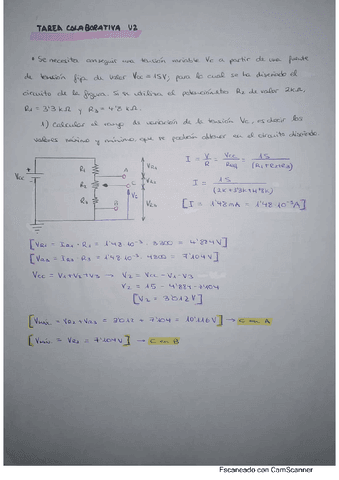 TAREA COLABORATIVA U2
• Se necesita conseguir una tensión variable Vc a partir de una fuente
de tensión fija de valor Vcc = 15V; para lo cual se ha diseñado el
circuito de la figura. Si se utiliza el potenciómetro R2 de valor 2kΩ,
R1 = 3'3 kΩ y R3 = 4'8 kΩ.
1) Calcular el rango de variación de la tensión Vc, es decir los
valores mínimo y máximo, que se podrían obtener en el circuito diseñado.
Vcc
R1
R2
R3
A
C
B
Vc
VR1
VR2
VR3
I = V/R = Vcc/Req = 15/(R1+R2+R3)
I = 15/(2k+3'3k+4'8k)
[I = 1'48mA = 1'48·10⁻³A]
[VR1 = IR1 · R1 = 1'48·10⁻³ · 3300 = 4'884V]
[VR3 = IR3 · R3 = 1'48·10⁻³ · 4800 = 7'104V]
Vcc = V1+V2+V3 → V2 = Vcc - V1 - V3
V2 = 15 - 4'884 - 7'104
[V2 = 3'012V]
[Vmáx. = VR2 + VR3 = 3'012 + 7'104 = 10'116V] → C en A
[Vmín. = VR3 = 7'104V] → C en B
Escaneado con CamScanner